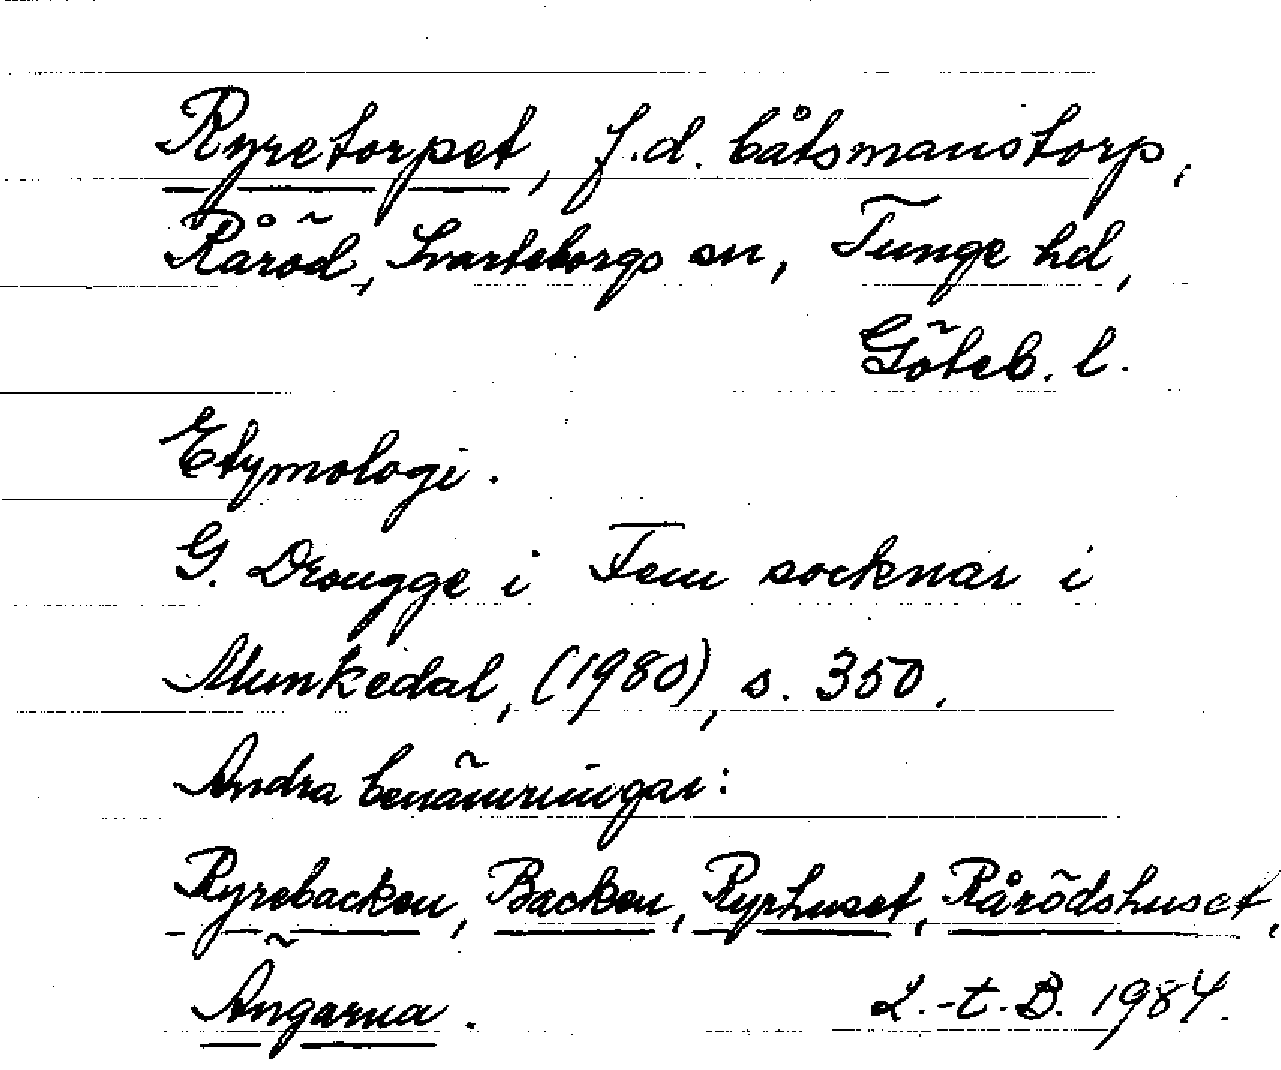 Ryretorpet, f.d. båtsmanstorp,
Råröd, Svarteborgs sn, Tunge hd,
Göteb. l.
Etymologi.
G. Drougge i Fem socknar i
Munkedal, (1980), s. 350.
Andra benämningar:
Ryrebacken, Backen, Ryrhuset, Rårödshuset,
Ängarna. L.-t. B. 1984.